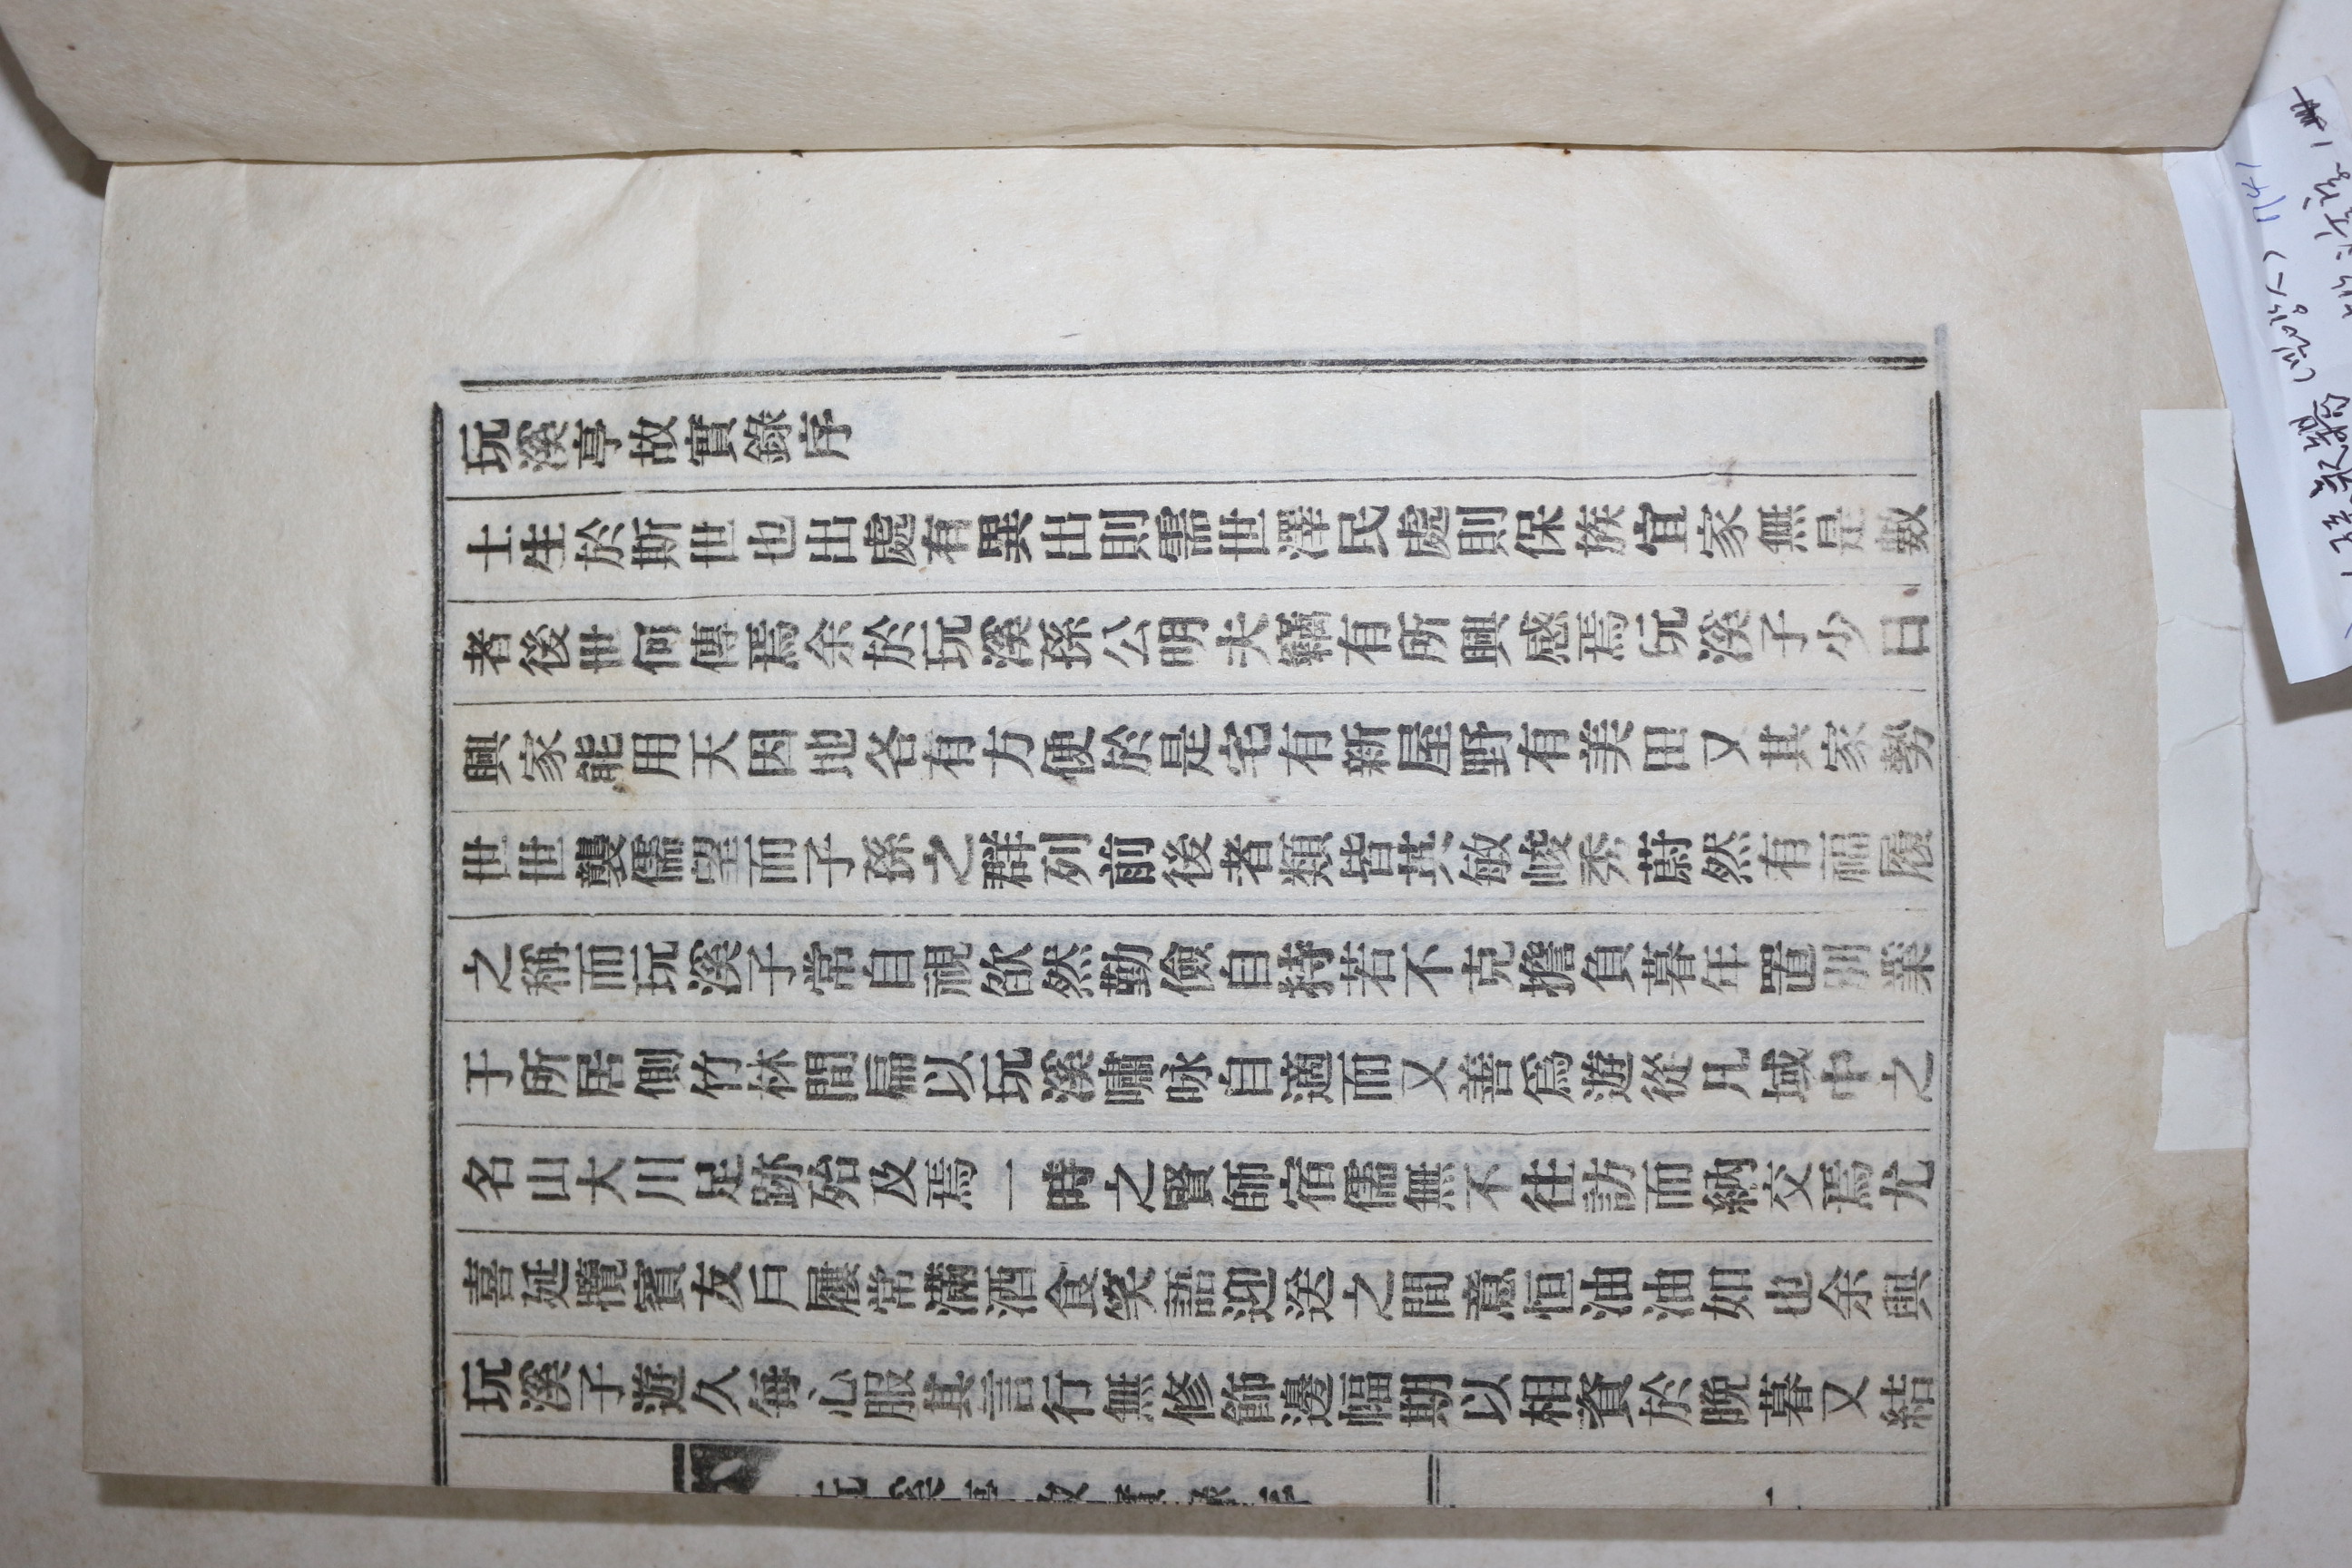 玩溪亭故實錄序
士生於斯世也出處有異出則需世澤民處則保族宜家無是數
者後世何傳焉余於玩溪孫公明夫竊有所興感焉玩溪子少日
興家能用天因地各有方便於是宅有新屋野有美田又其家勢
世世襲儒望而子孫之群列前後者類皆英敏峻秀蔚然有福履
之稱而玩溪子常自視欿然勤儉自持若不克擔負暮年置別業
于所居側竹林間扁以玩溪嘯咏自適而又善爲遊從凡域中之
名山大川足跡殆及焉一時之賢師宿儒無不往訪而納交焉尤
喜延攬賓友戶屨常滿酒食笑語迎送之間意恒油油如也余與
玩溪子遊久每心服其言行無修飾邊幅期以相資於晚暮又結
玩溪亭故實錄序
一
(밀양人) 1741